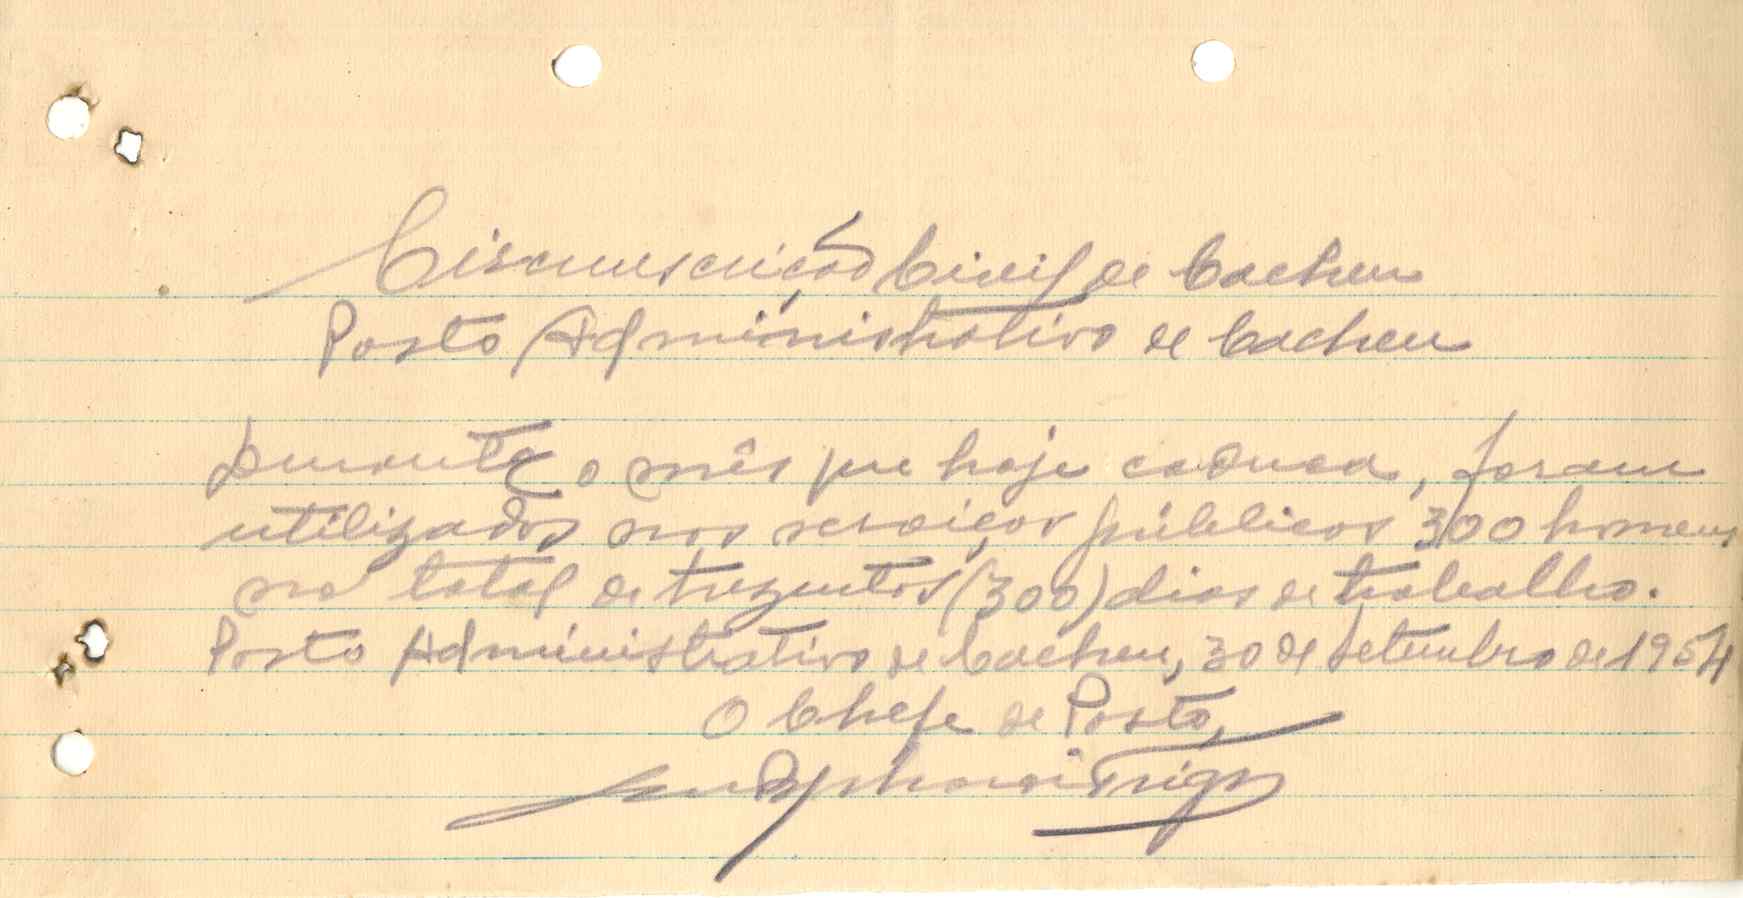 Circunscrição Civil de Cacheu
Posto Administrativo de Cacheu
Durante o mês que hoje caduca, foram
utilizados nos serviços públicos 300 homens
no total de trezentos (300) dias de trabalho.
Posto Administrativo de Cacheu, 30 de Setembro de 1954
O Chefe de Posto,